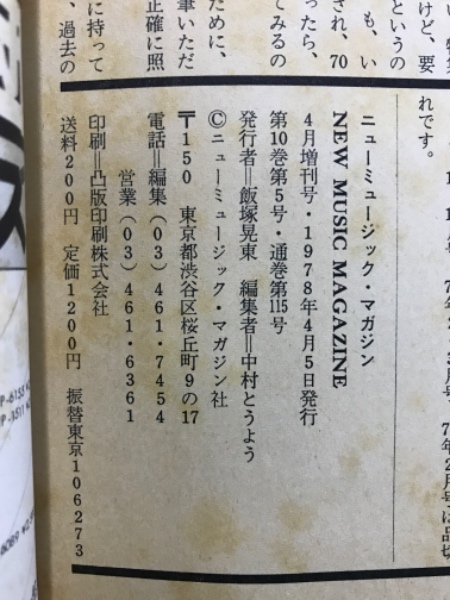 い、特集
けど、要
というの
も、い
され、70
ったら、
てみるの
ために、
筆いただ
正確に照
に持って
、過去の
れです。
ニューミュージック・マガジン
NEW MUSIC MAGAZINE
4月増刊号・1978年4月5日発行
第10巻第5号・通巻第115号
発行者＝飯塚晃東　編集者＝中村とうよう
©ニューミュージック・マガジン社
〒150　東京都渋谷区桜丘町9の17
電話＝編集（03）461・7454
営業（03）461・6361
印刷＝凸版印刷株式会社
送料200円　定価1200円　振替東京106273